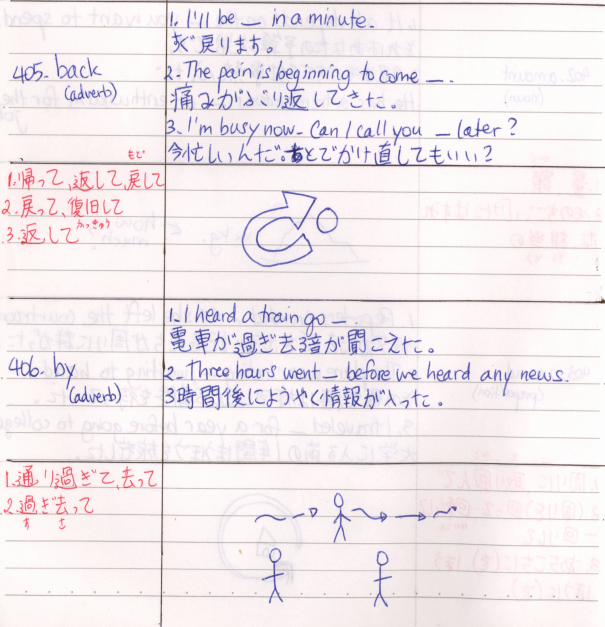 1. I'll be _ in a minute.
すぐ戻ります。
405. back
(adverb)
2. The pain is beginning to come _.
痛みがぶり返してきた。
3. I'm busy now. Can I call you _ later?
今忙しいんだ。あとでかけ直してもいい?
もど
1. 帰って、返して、戻して
2. 戻って、復旧して
ふっきゅう
3. 返して
1. I heard a train go _.
電車が過ぎ去る音が聞こえた。
406. by
(adverb)
2. Three hours went _ before we heard any news.
3時間後にようやく情報が入った。
1. 通り過ぎて、去って
2. 過ぎ去って
す さ